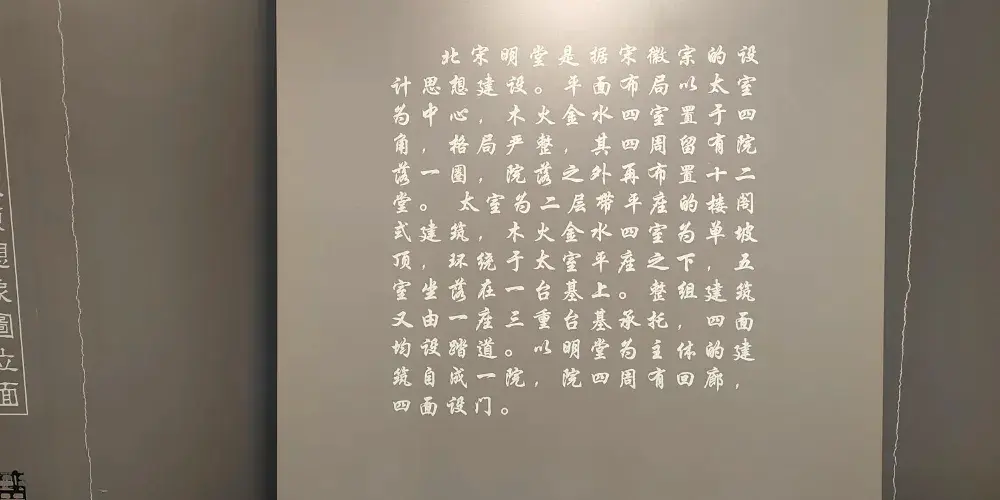 北宋明堂是据宋徽宗的设
计思想建设。平面布局以太室
为中心，木火金水四室置于四
角，格局严整，其四周留有院
落一圈，院落之外再布置十二
堂。 太室为二层带平座的楼阁
式建筑，木火金水四室为单坡
顶，环绕于太室平座之下，五
室坐落在一台基上。整组建筑
又由一座三重台基承托，四面
均设踏道。以明堂为主体的建
筑自成一院，院四周有回廊，
四面设门。
想像圖立面